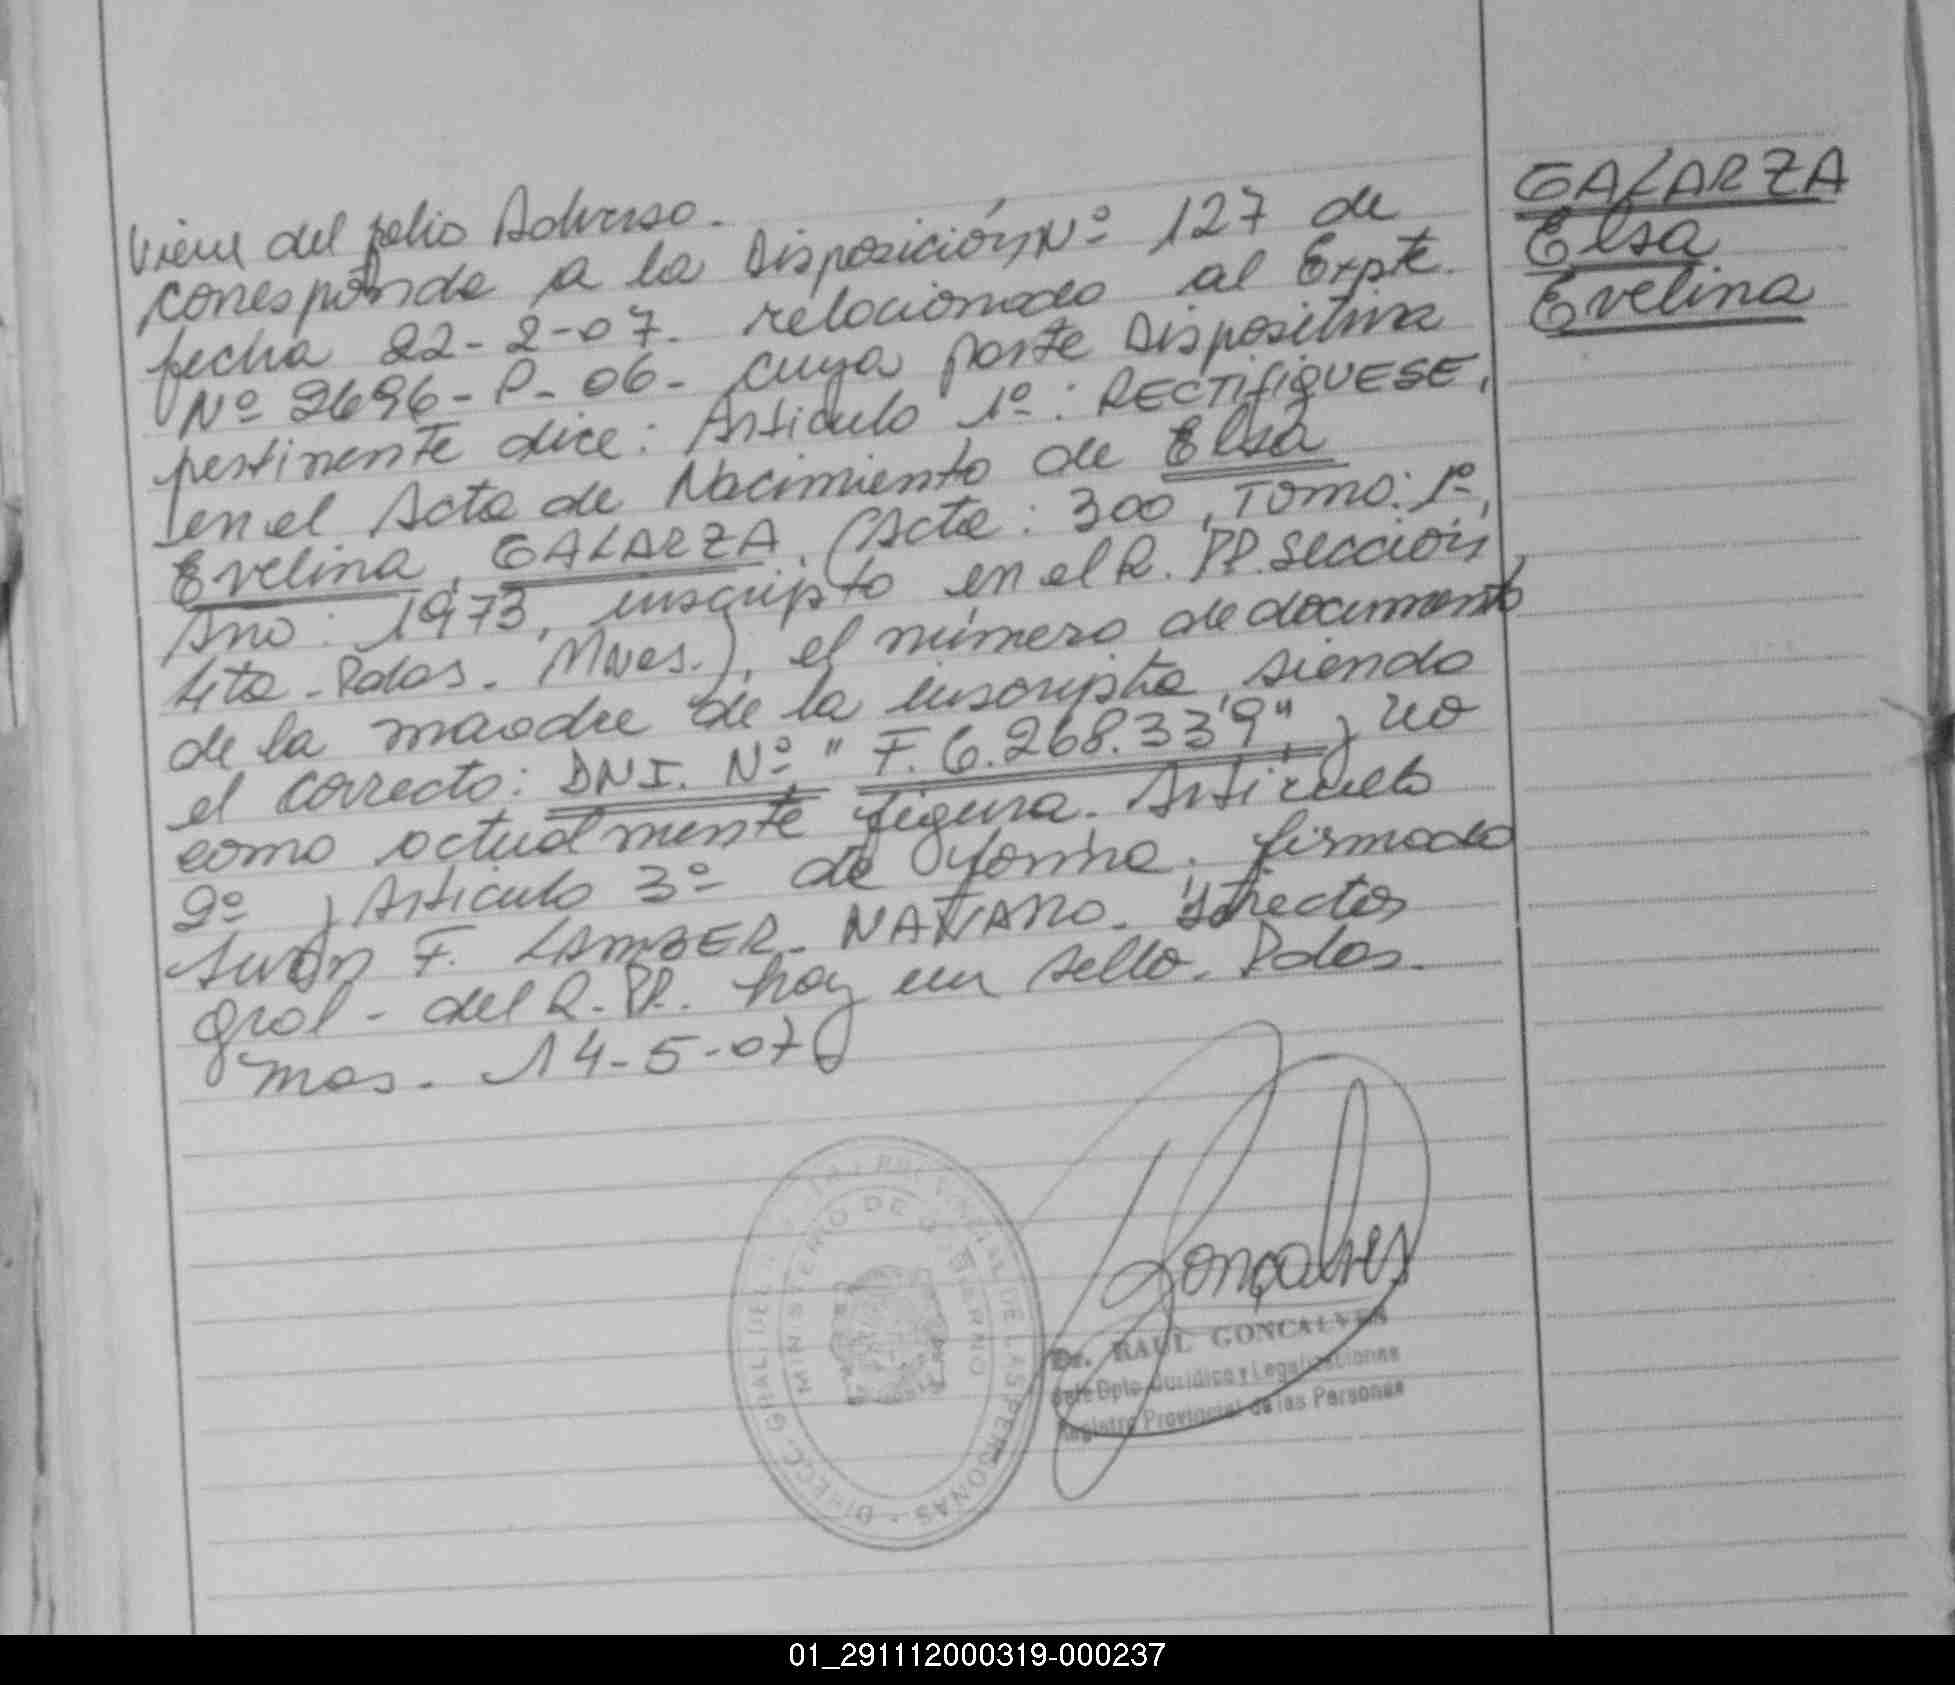 Viene del folio Adverso.
corresponde a la Disposición Nº 127 de
fecha 22-2-07. relacionado al Expte.
Nº 2696-P-06- cuya parte Dispositiva
pertinente dice: Articulo 1º: RECTIFIQUESE,
en el Acta de Nacimiento de Elsa
Evelina, GALARZA. (Acta: 300, Tomo: 1º,
Año: 1973, inscripto en el R. PP. Sección
4ta. Pdas. Mnes.), el número de documento
de la madre de la inscripta, siendo
el correcto: DNI. Nº "F.6.268.339", y no
como actualmente figura. Articulo
2º y Articulo 3º de forma. firmado
Juan F. LAMBER. NAVARRO. Director
Gral - del R. PP. hay un sello. Pdas.
Mnes. 14-5-07
GALARZA
Elsa
Evelina
DIRECC. GRAL. DEL PROVINCIAL DE LAS PERSONAS
MINISTERIO DE GOBIERNO
Gonçalves
Dr. RAUL GONCALVES
Jefe Dpto. Jurídico y Legalizaciones
Registro Provincial de las Personas
01_291112000319-000237